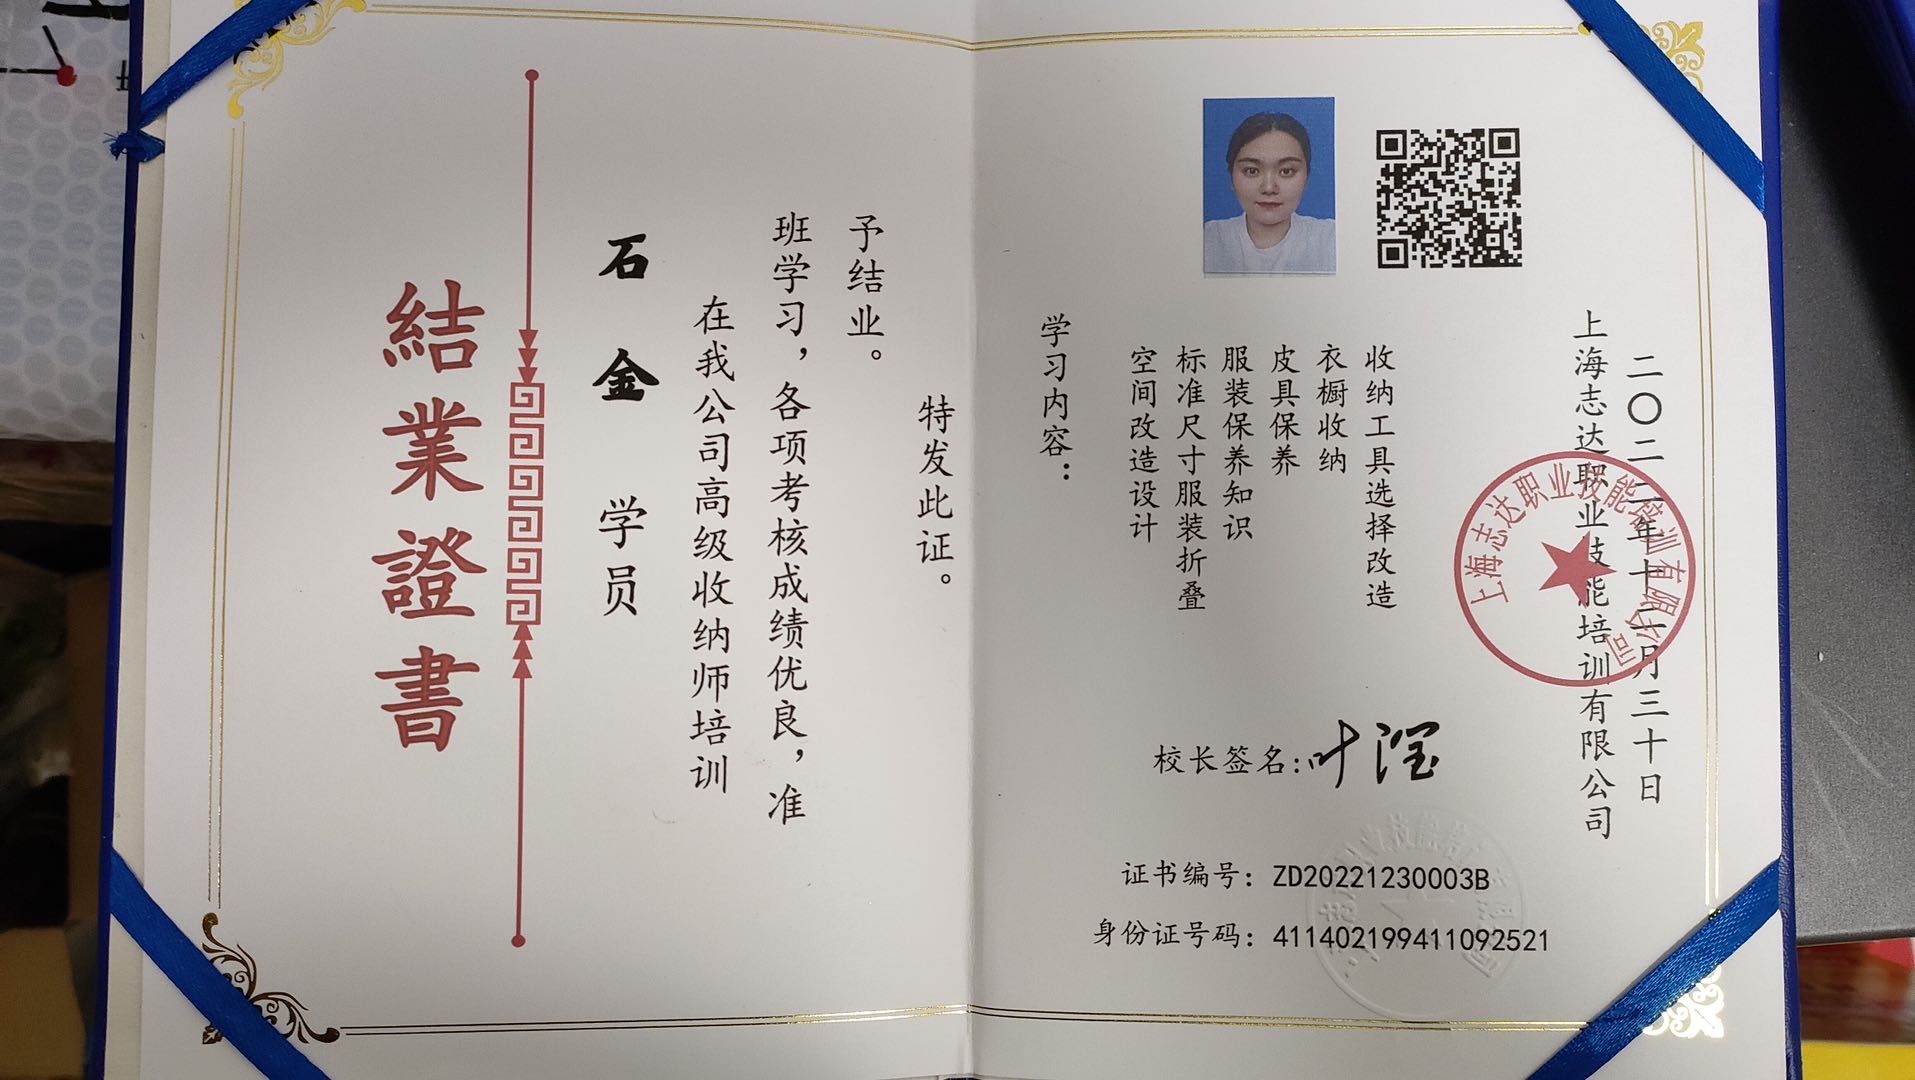 結業證書
石金 学员
在我公司高级收纳师培训
班学习，各项考核成绩优良，准
予结业。
特发此证。
学习内容：
空间改造设计
标准尺寸服装折叠
服装保养知识
皮具保养
衣橱收纳
收纳工具选择改造
上海志达职业技能培训有限公司
二〇二二年十二月三十日
上海志达职业技能培训有限公司
校长签名：叶滢
证书编号：ZD20221230003B
身份证号码：411402199411092521